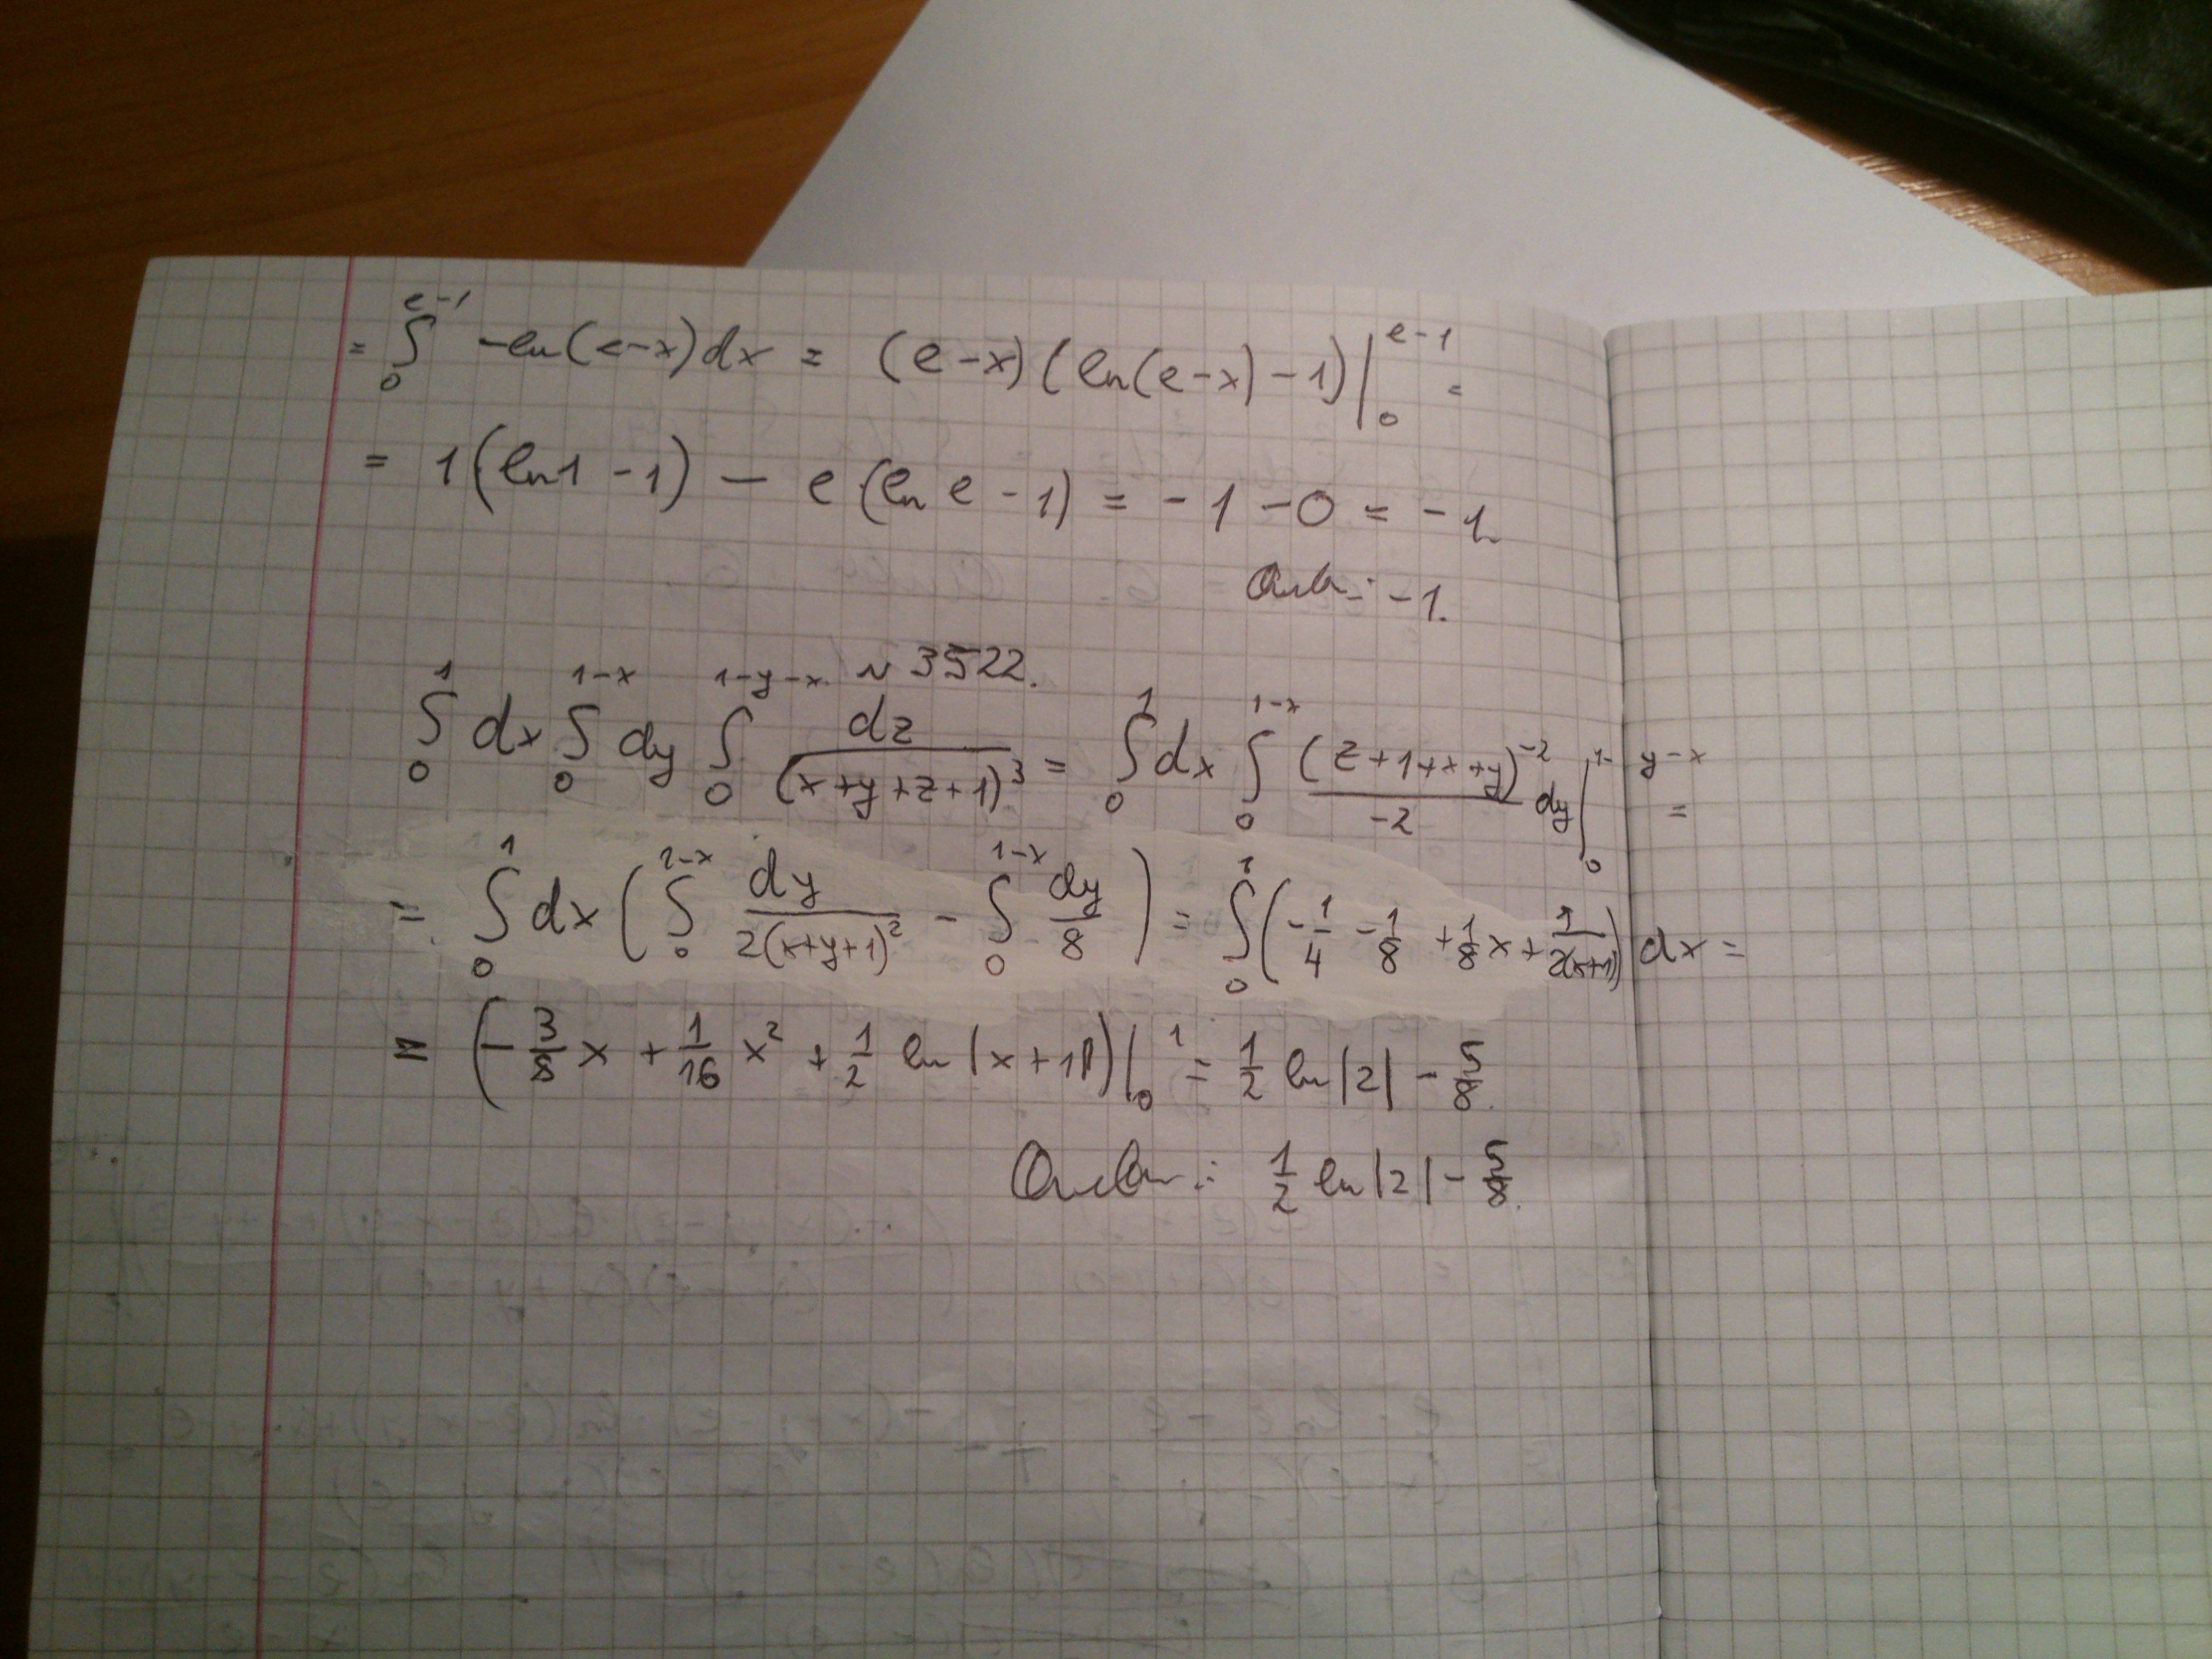 = ∫₀^{e-1} -ln(e-x)dx = (e-x)(ln(e-x)-1)|₀^{e-1} =
= 1(ln1-1) - e(ln e-1) = -1-0 = -1.
Отв.: -1.
№ 3522.
∫₀^1 dx ∫₀^{1-x} dy ∫₀^{1-y-x} dz/(x+y+z+1)^3 = ∫₀^1 dx ∫₀^{1-x} (z+1+x+y)^{-2}/-2 dy|₀^{1-y-x} =
= ∫₀^1 dx (∫₀^{1-x} dy/2(x+y+1)^2 - ∫₀^{1-x} dy/8) = ∫₀^1 (-1/4 - 1/8 + 1/8 x + 1/2(x+1)) dx =
= (-3/8 x + 1/16 x^2 + 1/2 ln|x+1|)|₀^1 = 1/2 ln|2| - 5/8.
Ответ: 1/2 ln|2| - 5/8.